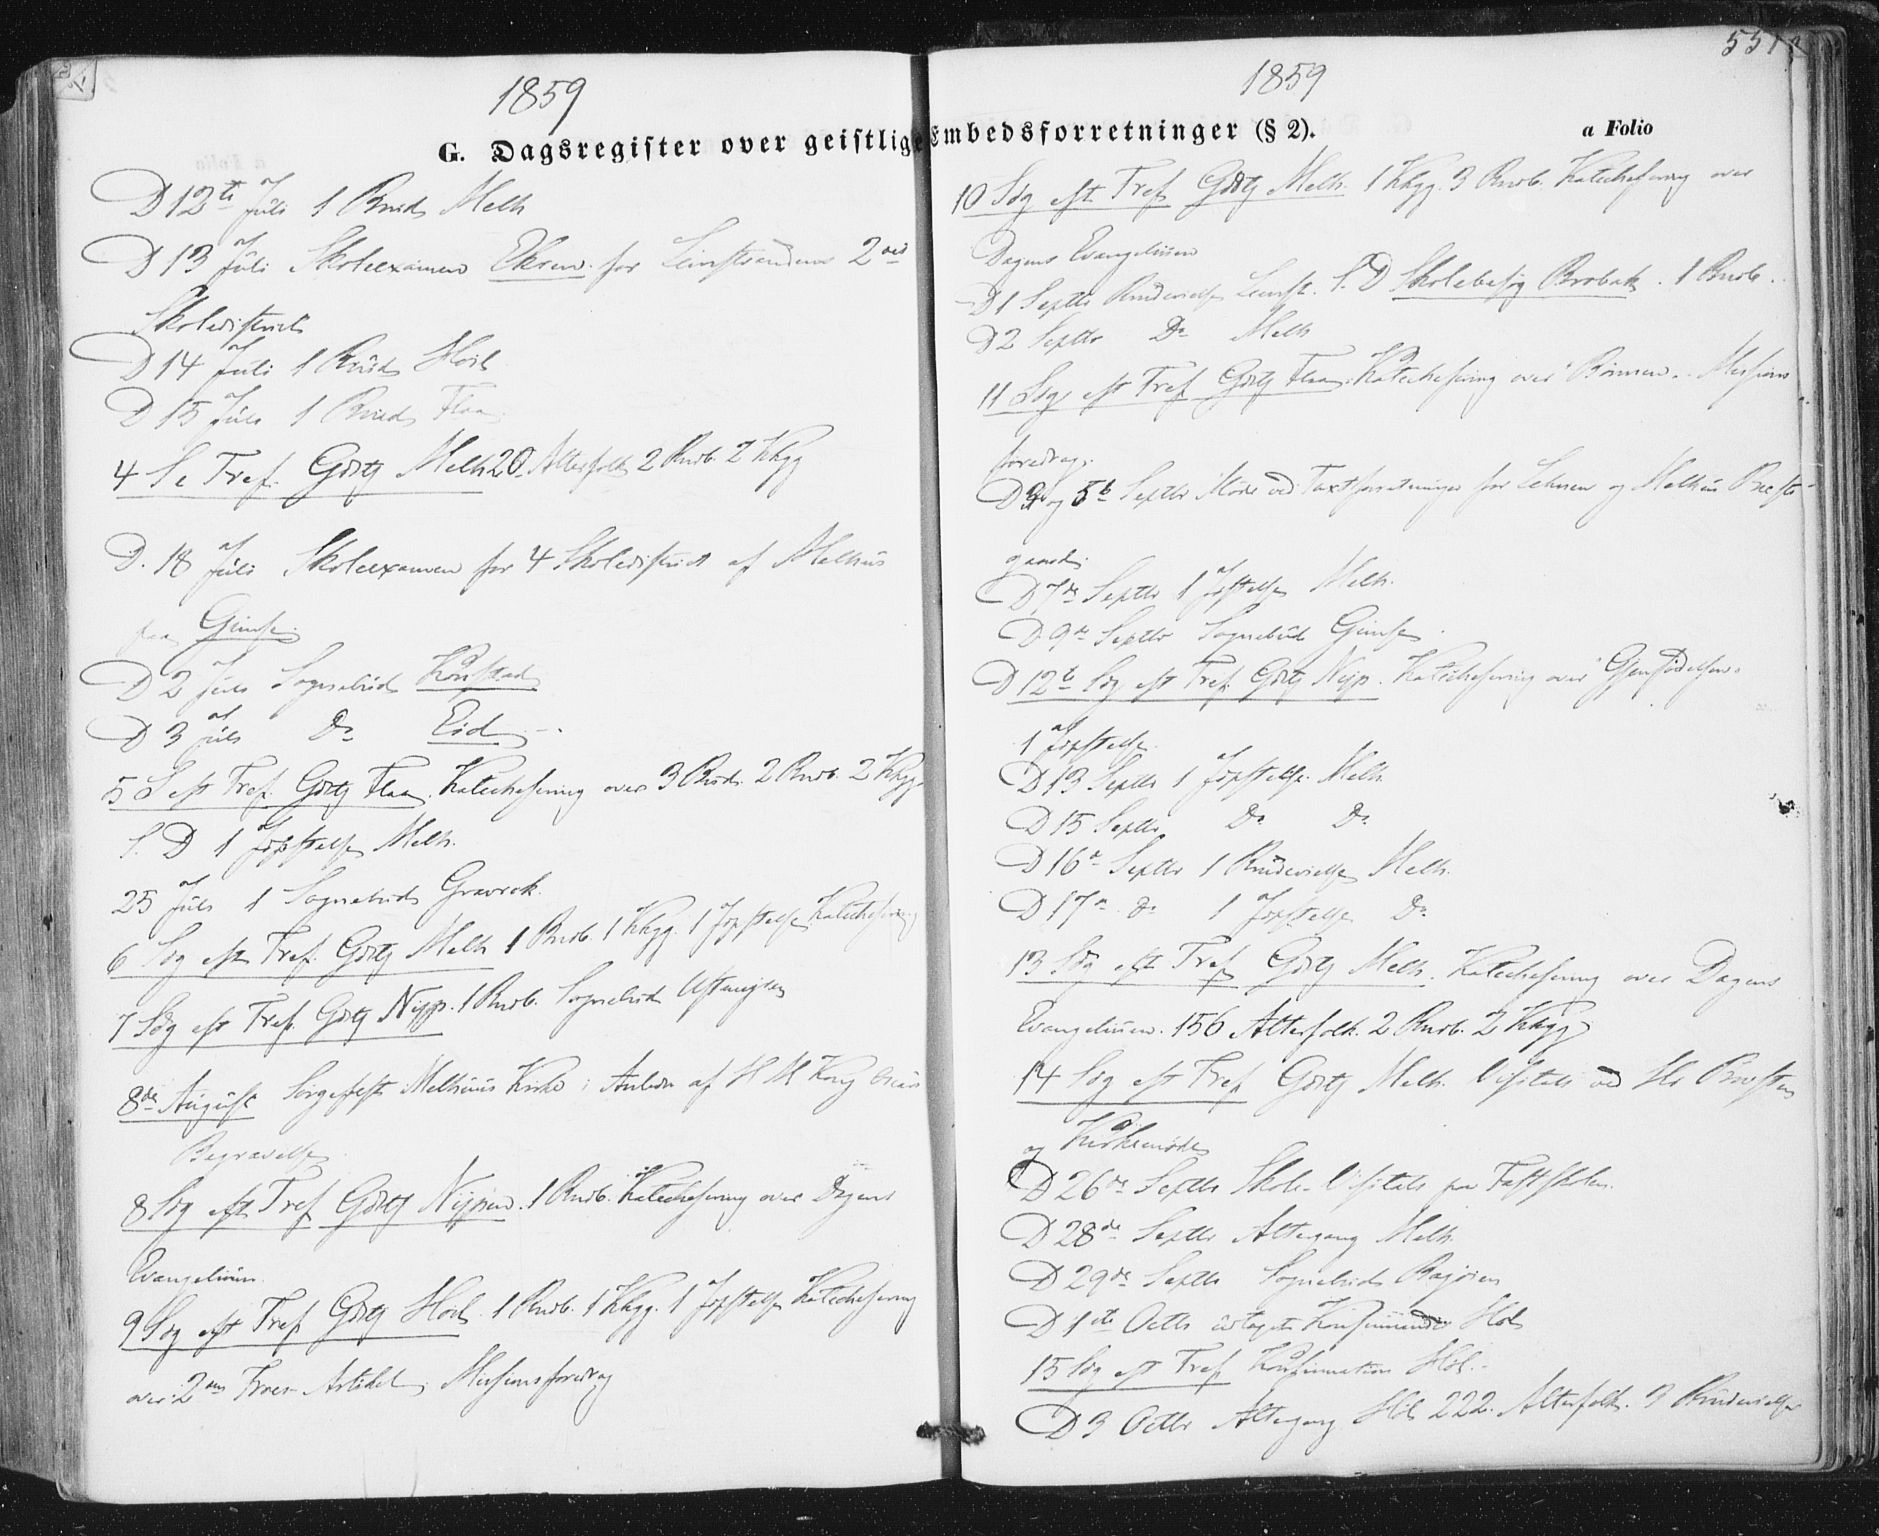 1859
G. Dagsregister over geistlige
D 12te Juli 1 Brud Melh
D 13 Juli Skoleexamen for Leinstrandens 2
Skoledistrict
D 14 Juli 1 Brud
D 15 Juli 1 Brud Flaa
4 S e Tref. Gdstj Melh 20 Alterfolk 2 Barnb. 2 Kkgg
D. 18 Juli Skoleexamen for 4 Skoledistrict af Melhus
paa Gimse.
D 2 Juli Sognebud
D 3 Juli Do Eid
5 S eft Tref. Gdstj Flaa. Katechesering over 3 Bud. 2 Barnb. 2 Kkgg
S. D 1 Jordfæstelse Melh.
25 Juli 1 Sognebud Gravrok.
6 Sdg eft Tref. Gdstj Melh 1 Barnb. 1 Kkgg. 1 Jordfæstelse Katechesering
7 Sdg eft Tref. Gdstj Nyp. 1 Barnb. Sognebud
8de August Sørgefest Melhuus Kirke i Anledn af H M Kong Oscars
Begravelse.
8 Sdg eft Tref Gdstj Nypen. 1 Barnb. Katechesering over Dagens
Evangelium.
9 Sdg eft Tref Gdstj 1 Barnb. 1 Kkgg. 1 Jordfæstelse Katechesering
over 2den Troes Artikel. Missionsforedrag
551
1859
Embedsforretninger (§ 2).
a Folio
10 Sdg eft Tref Gdstj Melh. 1 Kkgg. 3 Barnb. Katechesering over
Dagens Evangelium
D 1 Septbr Brudevielse Leinst. S. D Skolebesøg 1 Barnb.
D 2 Septbr Do Melh
11 Sdg eft Tref Gdstj Flaa. Katechesering over Bønnen. Missions
foredrag.
og 5te Septbr Møde ved Taxtforretninger for og Melhus Præste
gaard.
D 7de Septbr 1 Jordfæstelse Melh.
D 9de Septbr Sognebud Gimse.
D 12te Sdg eft Tref. Gdstj Nyp. Katechesering over Gjenfødelsen.
1 Jordfæstelse.
D 13 Septbr 1 Jordfæstelse Melh.
D 15 Septbr Do Do
D 16de Septbr 1 Brudevielse Melh.
D 17de do 1 Jordfæstelse Do
13 Sdg eft Tref Gdstj Melh. Katechesering over Dagens
Evangelium. 156 Alterfolk. 2 Barnb. 2 Kkgg
14 Sdg eft Tref Gdstj Melh. Visitats ved Hr Provsten
og Kirkemøde
D 26de Septbr Skole-Visitats paa Fastskolen.
D 28de Septbr Altergang Melh
D 29de Septbr Sognebud
D 1ste Octbr Konfirmander
15 Sdg eft Tref Konfirmation
D 3 Octbr Altergang 222. Alterfolk. 3 Brudevielser